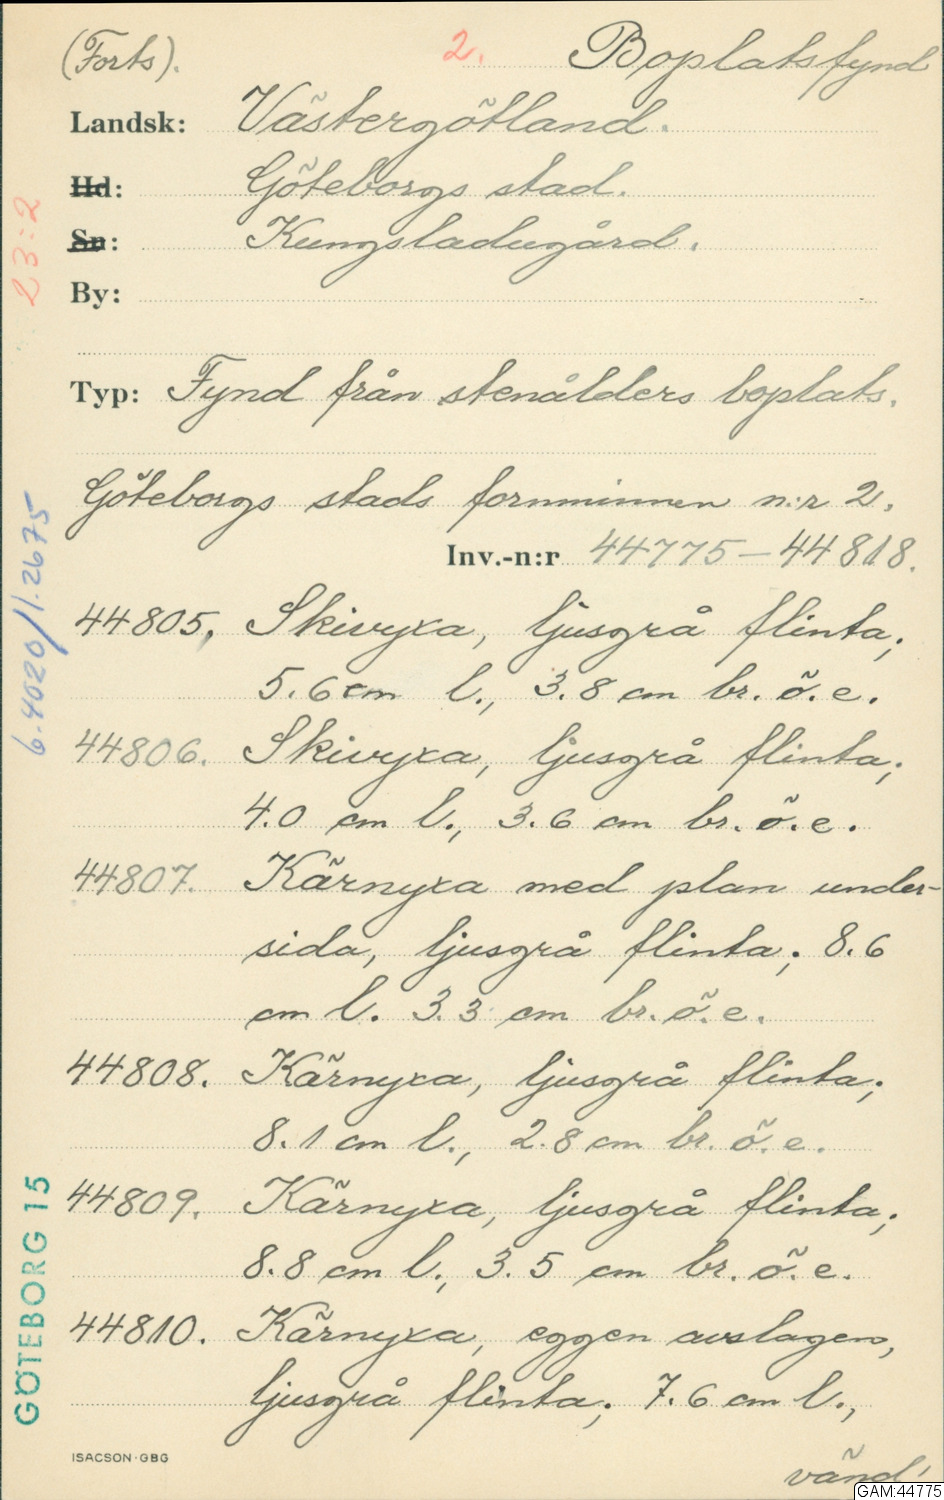 (Forts). 2. Boplatsfynd
Landsk: Västergötland.
Hd: Göteborgs stad.
Sn: Kungsladugård.
By:
Typ: Fynd från stenålders boplats.
Göteborgs stads fornminnen n:r 2.
Inv.-n:r 44775-44818.
44805. Skivyxa, ljusgrå flinta;
5.6 cm l., 3.8 cm br. ö. e.
44806. Skivyxa, ljusgrå flinta;
4.0 cm l., 3.6 cm br. ö. e.
44807. Kärnyxa med plan under-
sida, ljusgrå flinta; 8.6
cm l. 3.3 cm br. ö. e.
44808. Kärnyxa, ljusgrå flinta;
8.1 cm l., 2.8 cm br. ö. e.
44809. Kärnyxa, ljusgrå flinta;
8.8 cm l., 3.5 cm br. ö. e.
44810. Kärnyxa, eggen avslagen,
ljusgrå flinta; 7.6 cm l.,
vänd!
ISACSON·GBG
GAM:44775
23:2
6.4020/1.2675
GÖTEBORG 15